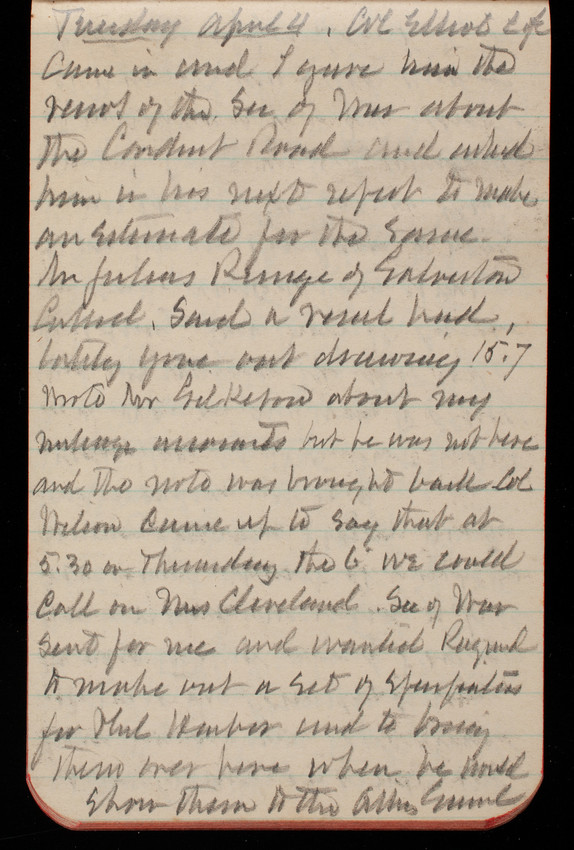 Tuesday April 4. Col Elliot Cof
Came in and I gave him the
views of the Sec of War about
the Conduit Road and asked
him in his next report to make
an Estimate for the Same.
Mr Julius Runge of Galveston
Called. Said a vessel had,
lately gone out drawing 15.7
Wrote Mr Gilkeson about my
mileage accounts but he was not here
and the note was brought back Col
Wilson Came up to Say that at
5.30 on Thursday the 6" we could
Call on Mrs Cleveland. Sec of War
Sent for me and wanted
to make out a Set of
for Phil Harbor and to bring
them over here when he would
Show them to the Atty General